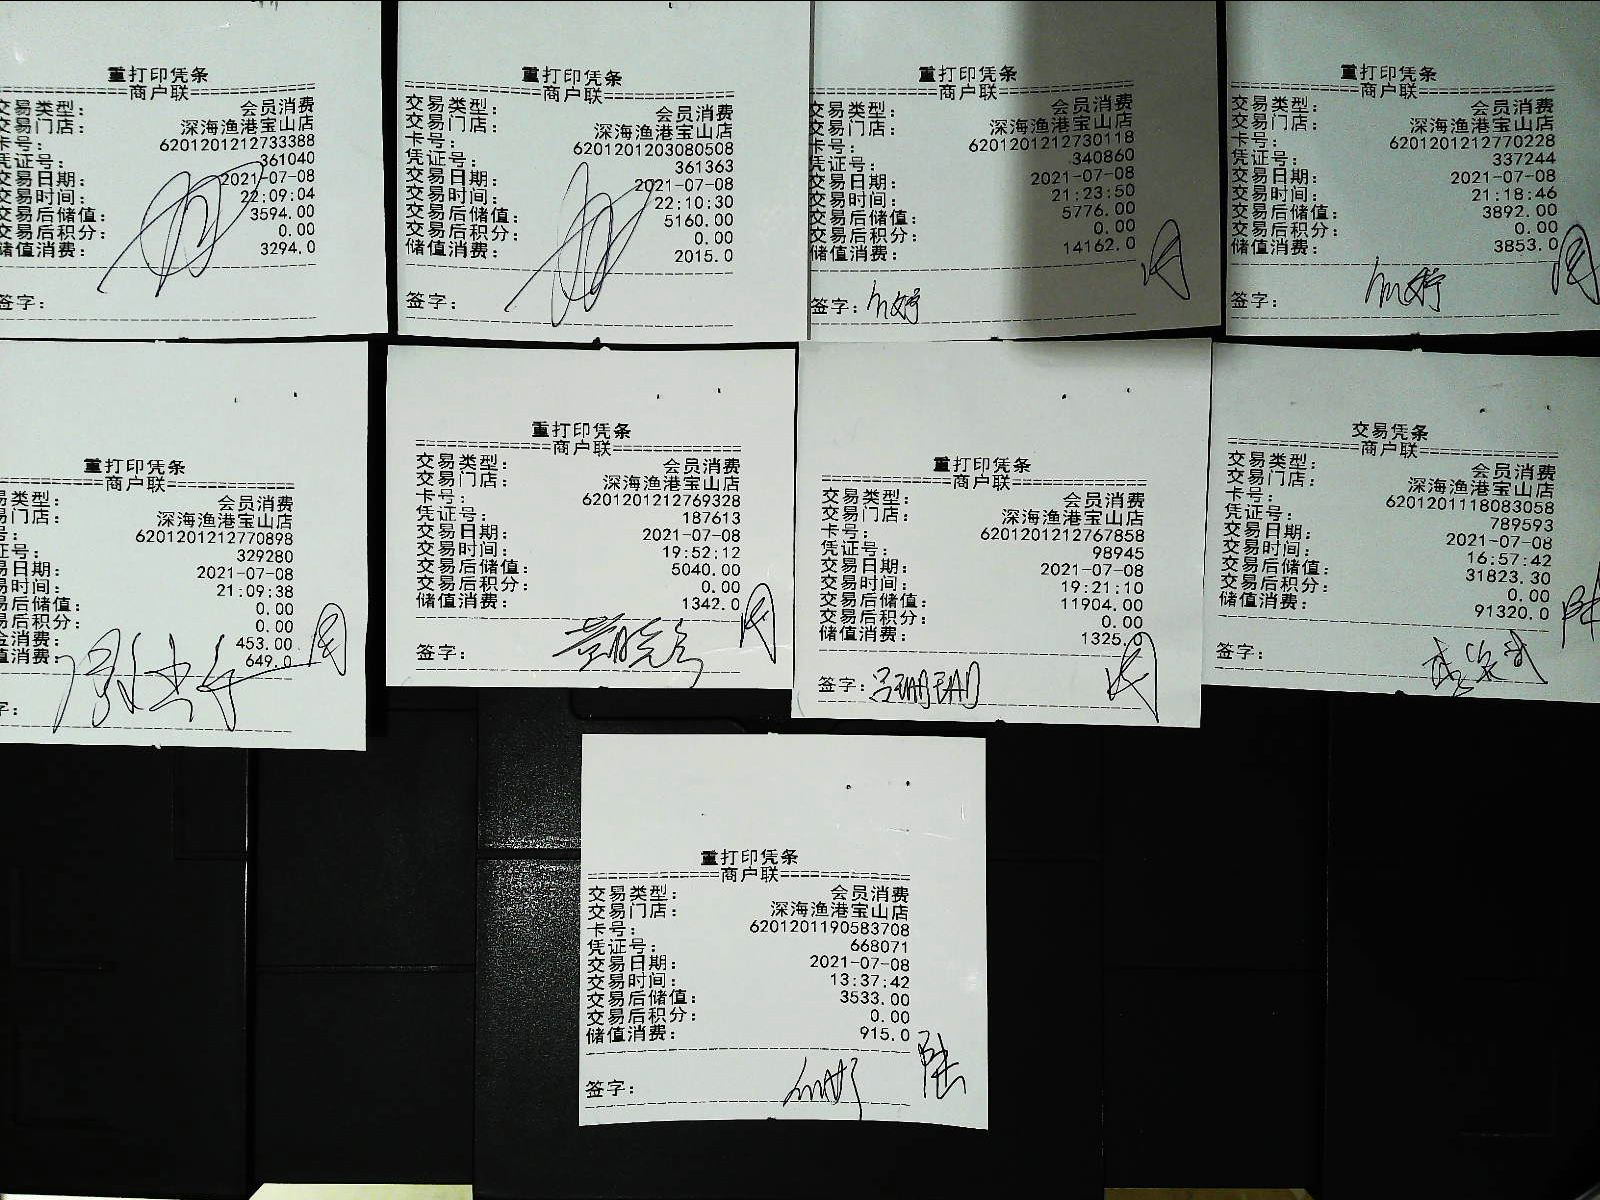 重打印凭条
商户联
交易类型： 会员消费
交易门店： 深海渔港宝山店
卡号： 6201201212733388
凭证号： 361040
交易日期： 2021-07-08
交易时间： 22:09:04
交易后储值： 3594.00
交易后积分： 0.00
储值消费： 3294.0
签字：
重打印凭条
商户联
交易类型： 会员消费
交易门店： 深海渔港宝山店
卡号： 6201201203080508
凭证号： 361363
交易日期： 2021-07-08
交易时间： 22:10:30
交易后储值： 5160.00
交易后积分： 0.00
储值消费： 2015.0
签字：
重打印凭条
商户联
交易类型： 会员消费
交易门店： 深海渔港宝山店
卡号： 6201201212730118
凭证号： 340860
交易日期： 2021-07-08
交易时间： 21:23:50
交易后储值： 5776.00
交易后积分： 0.00
储值消费： 14162.0
签字：
重打印凭条
商户联
交易类型： 会员消费
交易门店： 深海渔港宝山店
卡号： 6201201212770228
凭证号： 337244
交易日期： 2021-07-08
交易时间： 21:18:46
交易后储值： 3892.00
交易后积分： 0.00
储值消费： 3853.0
签字：
重打印凭条
商户联
易类型： 会员消费
易门店： 深海渔港宝山店
号： 6201201212770898
证号： 329280
易日期： 2021-07-08
易时间： 21:09:38
易后储值： 0.00
易后积分： 0.00
金消费： 453.00
值消费： 649.0
字：
重打印凭条
商户联
交易类型： 会员消费
交易门店： 深海渔港宝山店
卡号： 6201201212769328
凭证号： 187613
交易日期： 2021-07-08
交易时间： 19:52:12
交易后储值： 5040.00
交易后积分： 0.00
储值消费： 1342.0
签字：
重打印凭条
商户联
交易类型： 会员消费
交易门店： 深海渔港宝山店
卡号： 6201201212767858
凭证号： 98945
交易日期： 2021-07-08
交易时间： 19:21:10
交易后储值： 11904.00
交易后积分： 0.00
储值消费： 1325.0
签字：
交易凭条
商户联
交易类型： 会员消费
交易门店： 深海渔港宝山店
卡号： 6201201118083058
凭证号： 789593
交易日期： 2021-07-08
交易时间： 16:57:42
交易后储值： 31823.30
交易后积分： 0.00
储值消费： 91320.0
签字：
重打印凭条
商户联
交易类型： 会员消费
交易门店： 深海渔港宝山店
卡号： 6201201190583708
凭证号： 668071
交易日期： 2021-07-08
交易时间： 13:37:42
交易后储值： 3533.00
交易后积分： 0.00
储值消费： 915.0
签字：